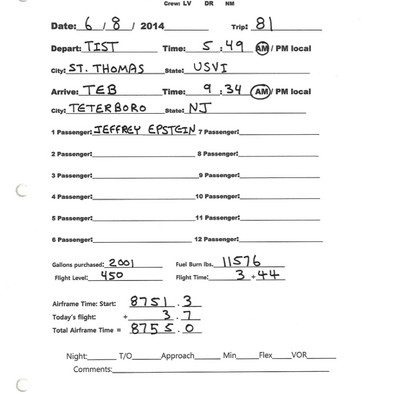 Crew: LV DR NM
Date: 6 / 8 / 2014 Trip: 81
Depart: TIST Time: 5 : 49 AM / PM local
City: ST. THOMAS State: USVI
Arrive: TEB Time: 9 : 34 AM / PM local
City: TETERBORO State: NJ
1 Passenger: JEFFREY EPSTEIN 7 Passenger:
2 Passenger: 8 Passenger:
3 Passenger: 9 Passenger:
4 Passenger: 10 Passenger:
5 Passenger: 11 Passenger:
6 Passenger: 12 Passenger:
Gallons purchased: 2001 Fuel Burn lbs. 11576
Flight Level: 450 Flight Time: 3 + 44
Airframe Time: Start: 8751 . 3
Today's flight: + 3 . 7
Total Airframe Time = 8755 . 0
Night: T/O Approach Min Flex VOR
Comments: